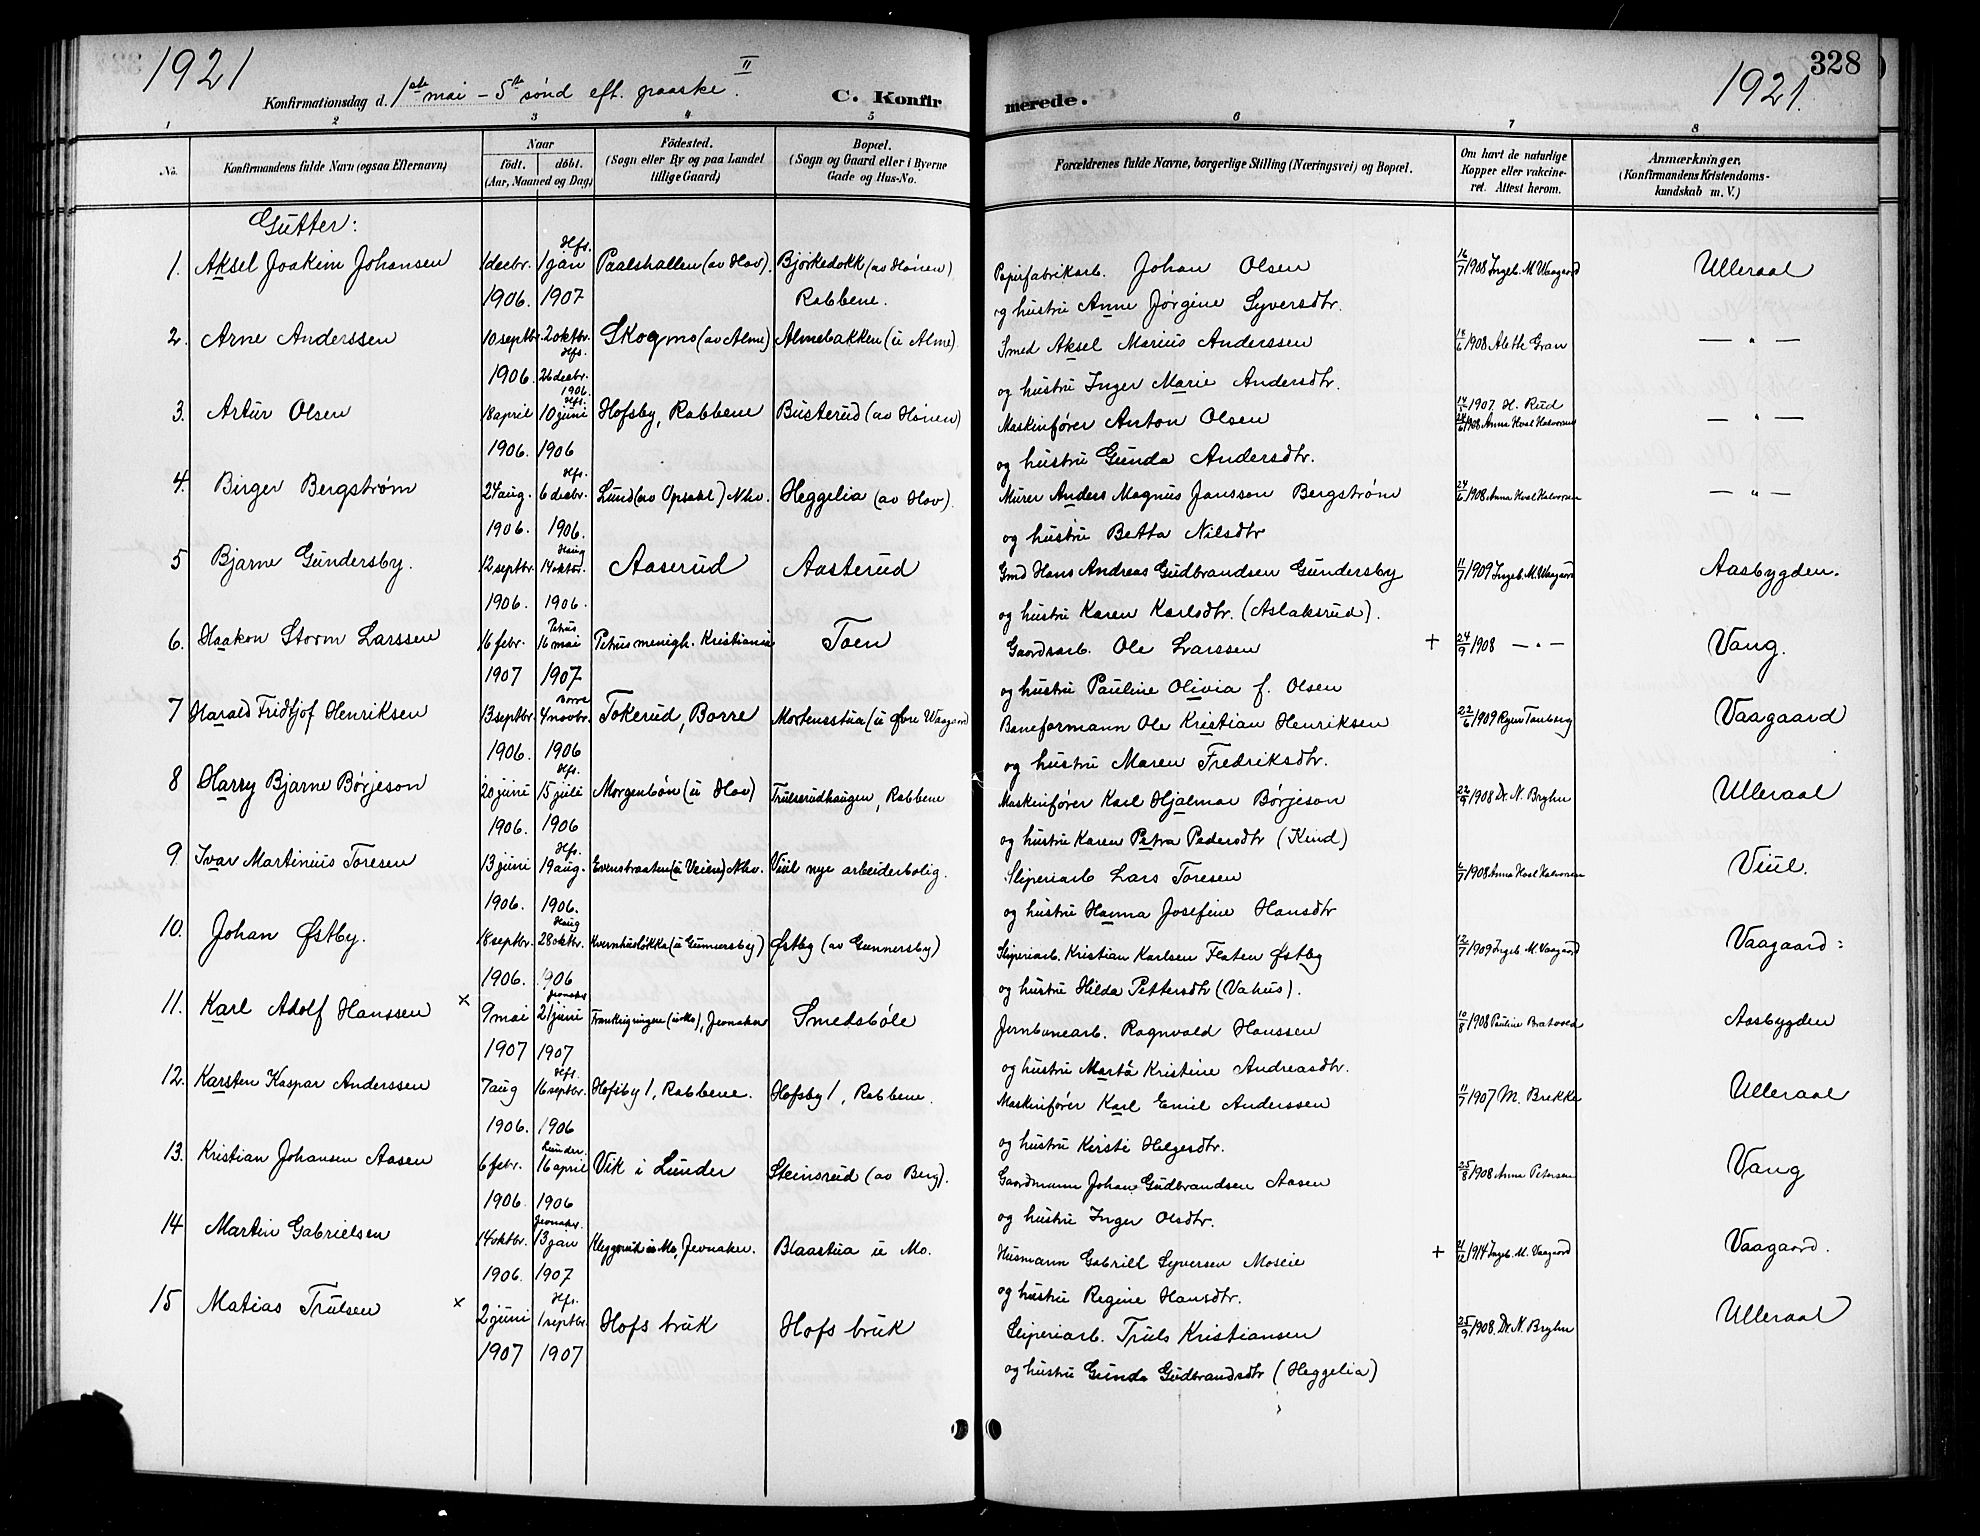 1921
328
1921.
II
Konfirmationsdag d. 1ste mai – 5te sønd eft. paaske.
C. Konfirmerede.
1 2 3 4 5 6 7 8
No.
Konfirmandens fulde Navn (ogsaa Efternavn)
Naar
födt. döbt.
(Aar, Maaned og Dag)
Födested.
(Sogn eller By og paa Landet tillige Gaard)
Bopæl.
(Sogn og Gaard eller i Byerne Gade og Hus-No.
Forældrenes fulde Navne, borgerlige Stilling (Næringsvei) og Bopæl.
Om havt de naturlige Kopper eller vakcineret. Attest herom.
Anmærkninger,
(Konfirmandens Kristendomskundskab m. V.)
Gutter:
1. Aksel Joakim Johansen 1 decbr. 1906. Hfs. 1 jan 1907 Paalshallen (av Hov). Bjørkedokk (av Hønen) Rabbene. Papirfabrikarb. Johan Olsen 16/7 1908 Ingeb. M. Waagaard Ulleraal
og hustru Anne Jørgine Syversdtr.
2. Arne Anderssen 10 septbr. 1906. 2 oktbr. Hfs. 26 decbr. 1906. Skogmo (av Alme) Almebakken (u Alme). Smed Aksel Marius Anderssen 18/6 1908 Aleth Gran — " —
og hustru Inger Marie Andersdtr.
3. Artur Olsen 18 april 1906. Hfs. 10 juni 1906 Hofsby, Rabbene Busterud (av Hønen) Maskinfører Anton Olsen 1907. H. Rud 24/6 1908 Anna Hval Halvorsen — " —
og hustru Gunda Andersdtr.
4. Birger Bergstrøm 24 aug. 1906. Hfs. 6 decbr. 1906. Lund (av Opsahl) Nhv. Heggelia (av Hov). Murer Anders Magnus Jansson Bergstrøm 24/6 1908 Anna Hval Halvorsen — " —
og hustru Betta Nilsdtr
5 Bjarne Gundersby. 12 septbr. 1906. Haug 14 oktbr. 1906. Aaserud Aasterud Gmd Hans Andreas Gudbrandsen Gundersby 11/7 1909 Ingeb. M. Waagaard Aasbygden.
og hustru Karen Karlsdtr. (Aslaksrud).
6. Haakon Storm Larssen 16 febr. 1907 Petrus 16 mai 1907. Petrus menigh. Kristiania Toen Gaardsarb. Ole Larssen + 24/9 1908 — " — Vang.
og hustru Pauline Olivia f. Olsen
7 Harald Fridtjof Henriksen 13 septbr. 1906. Borre 4 novbr. 1906 Tokerud, Borre Mortensstua (u Øvre Waagaard Baneformann Ole Kristian Henriksen 22/6 1909 Vaagaard
og hustru Maren Fredriksdtr.
8 Harry Bjarne Børjeson 20 juni 1906. Hfs. 15 juli 1906 Morgenbøn (u Hov) Trulserudhaugen, Rabbene Maskinfører Karl Hjalmar Børjeson 22/9 1908 Dr. N. Bryhn Ulleraal
og hustru Karen Petra Pedersdtr (Kind)
9. Ivar Martinius Toresen 13 juni 1906. Hfs. 19 aug. 1906. Evensbraaten (u Veien) Nhv. Viul nye arbeiderbolig. Sliperiarb Lars Toresen 6/7 1908 Anna Hval Halvorsen Viul.
og hustru Hanna Josefine Hansdtr
10. Johan Østby. 18 septbr. 1906. Haug 28 oktbr. 1906 Kvernhusløkka (u Gunnersby) Østby (av Gunnersby) Sliperiarb. Kristian Karlsen Flaten Østby 12/7 1909 Ingeb. M. Vaagaard Vaagaard:
og hustru Hilda Pettersdtr (Vahus).
11. Karl Adolf Hanssen × 9 mai 1907 Jevnaker 21 juni 1907 Frankrigningen (u Mo), Jevnaker Smedsbøle Jernbanearb. Ragnvald Hanssen 10/8 1908 Pauline Bratvold Aasbygden
og hustru Marta Kristine Andreasdtr.
12. Karsten Kaspar Anderssen 7 aug 1906. Hfs. 16 septbr. 1906 Hofsby 1, Rabbene. Hofsby 1, Rabbene. Maskinfører Karl Emil Anderssen 11/7 1907 M. Brekke Ulleraal
og hustru Kirsti Helgesdtr.
13. Kristian Johansen Aasen 6 febr. 1906. Lunder 16 april 1906 Vik i Lunder Steinsrud (av Berg). Gaardmann Johan Gudbrandsen Aasen 25/8 1908 Anna Petersen Vang
og hustru Inger Olsdtr.
14 Martin Gabrielsen 14 oktbr. 1906. Jevnaker. 13 jan 1907 Kleggerud u Mo, Jevnaker. Blaastua u Mo. Husmann Gabriel Syversen Moseie + 21/12 1914 Ingeb. M. Vaagaard Vaagaard.
og hustru Regine Hansdtr.
15 Matias Trulsen × 2 juni 1907 Hfs. 1 septbr. 1907 Hofs bruk Hofs bruk Sliperiarb. Truls Kristiansen 25/9 1908. Dr. N. Bryhn Ulleraal
og hustru Gunda Gudbrandsdtr (Heggelia)